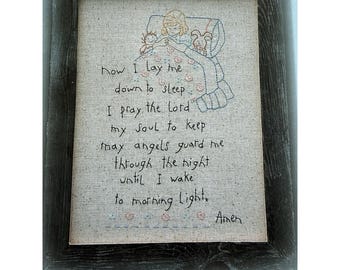 now I lay me
down to sleep
I pray the Lord
my soul to keep
may angels guard me
through the night
until I wake
to morning light.
Amen